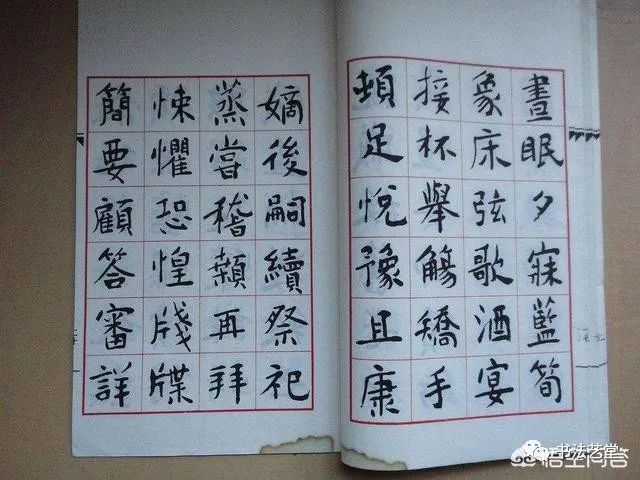 晝眠夕寐藍筍
象床弦歌酒宴
接杯舉觴矯手
頓足悅豫且康
嫡後嗣續祭祀
蒸嘗稽顙再拜
悚懼恐惶牋牒
簡要顧答審詳
书法艺堂
悟空问答